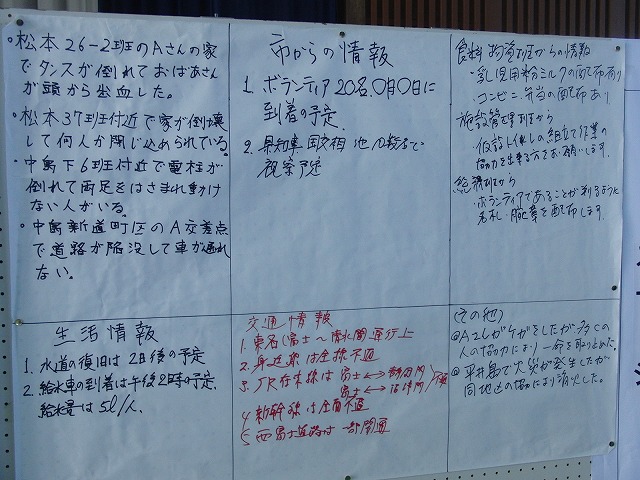 ・松本26-2班のAさんの家
でタンスが倒れておばあさん
が頭から出血した。
・松本37班付近で家が倒壊
して何人か閉じ込められている。
・中島下6班付近で電柱が
倒れて両足をはさまれ動け
ない人がいる。
・中島新道町区のA交差点
で道路が陥没して車が通れ
ない。
市からの情報
1. ボランティア20名、0月0日に
到着の予定.
2. 県知事 国交相 他
視察予定
食料物資班からの情報
・乳児用粉ミルクの配布有り
・コンビニ弁当の配布あり
施設管理班から
・仮設トイレの組立て作業の
協力を出来る方はお願いします。
総務班から
・ボランティアであることが判るように
名札・腕章を配布します.
生活情報
1. 水道の復旧は2日後の予定
2. 給水車の到着は午後2時の予定.
給水量は5ℓ/人.
交通情報
1. 東名(富士〜清水間 通行止
2. 身延線は全線不通
3. JR在来線は 富士⟷静岡間
富士⟷沼津間 不通
4. 新幹線は全面不通
5. 西富士道路は一部開通
(その他)
◎Aさんがケガをしたが多くの
人の協力により一命を取り止めた.
◎平井島で火災が発生したが
同地区の協力により消火した。